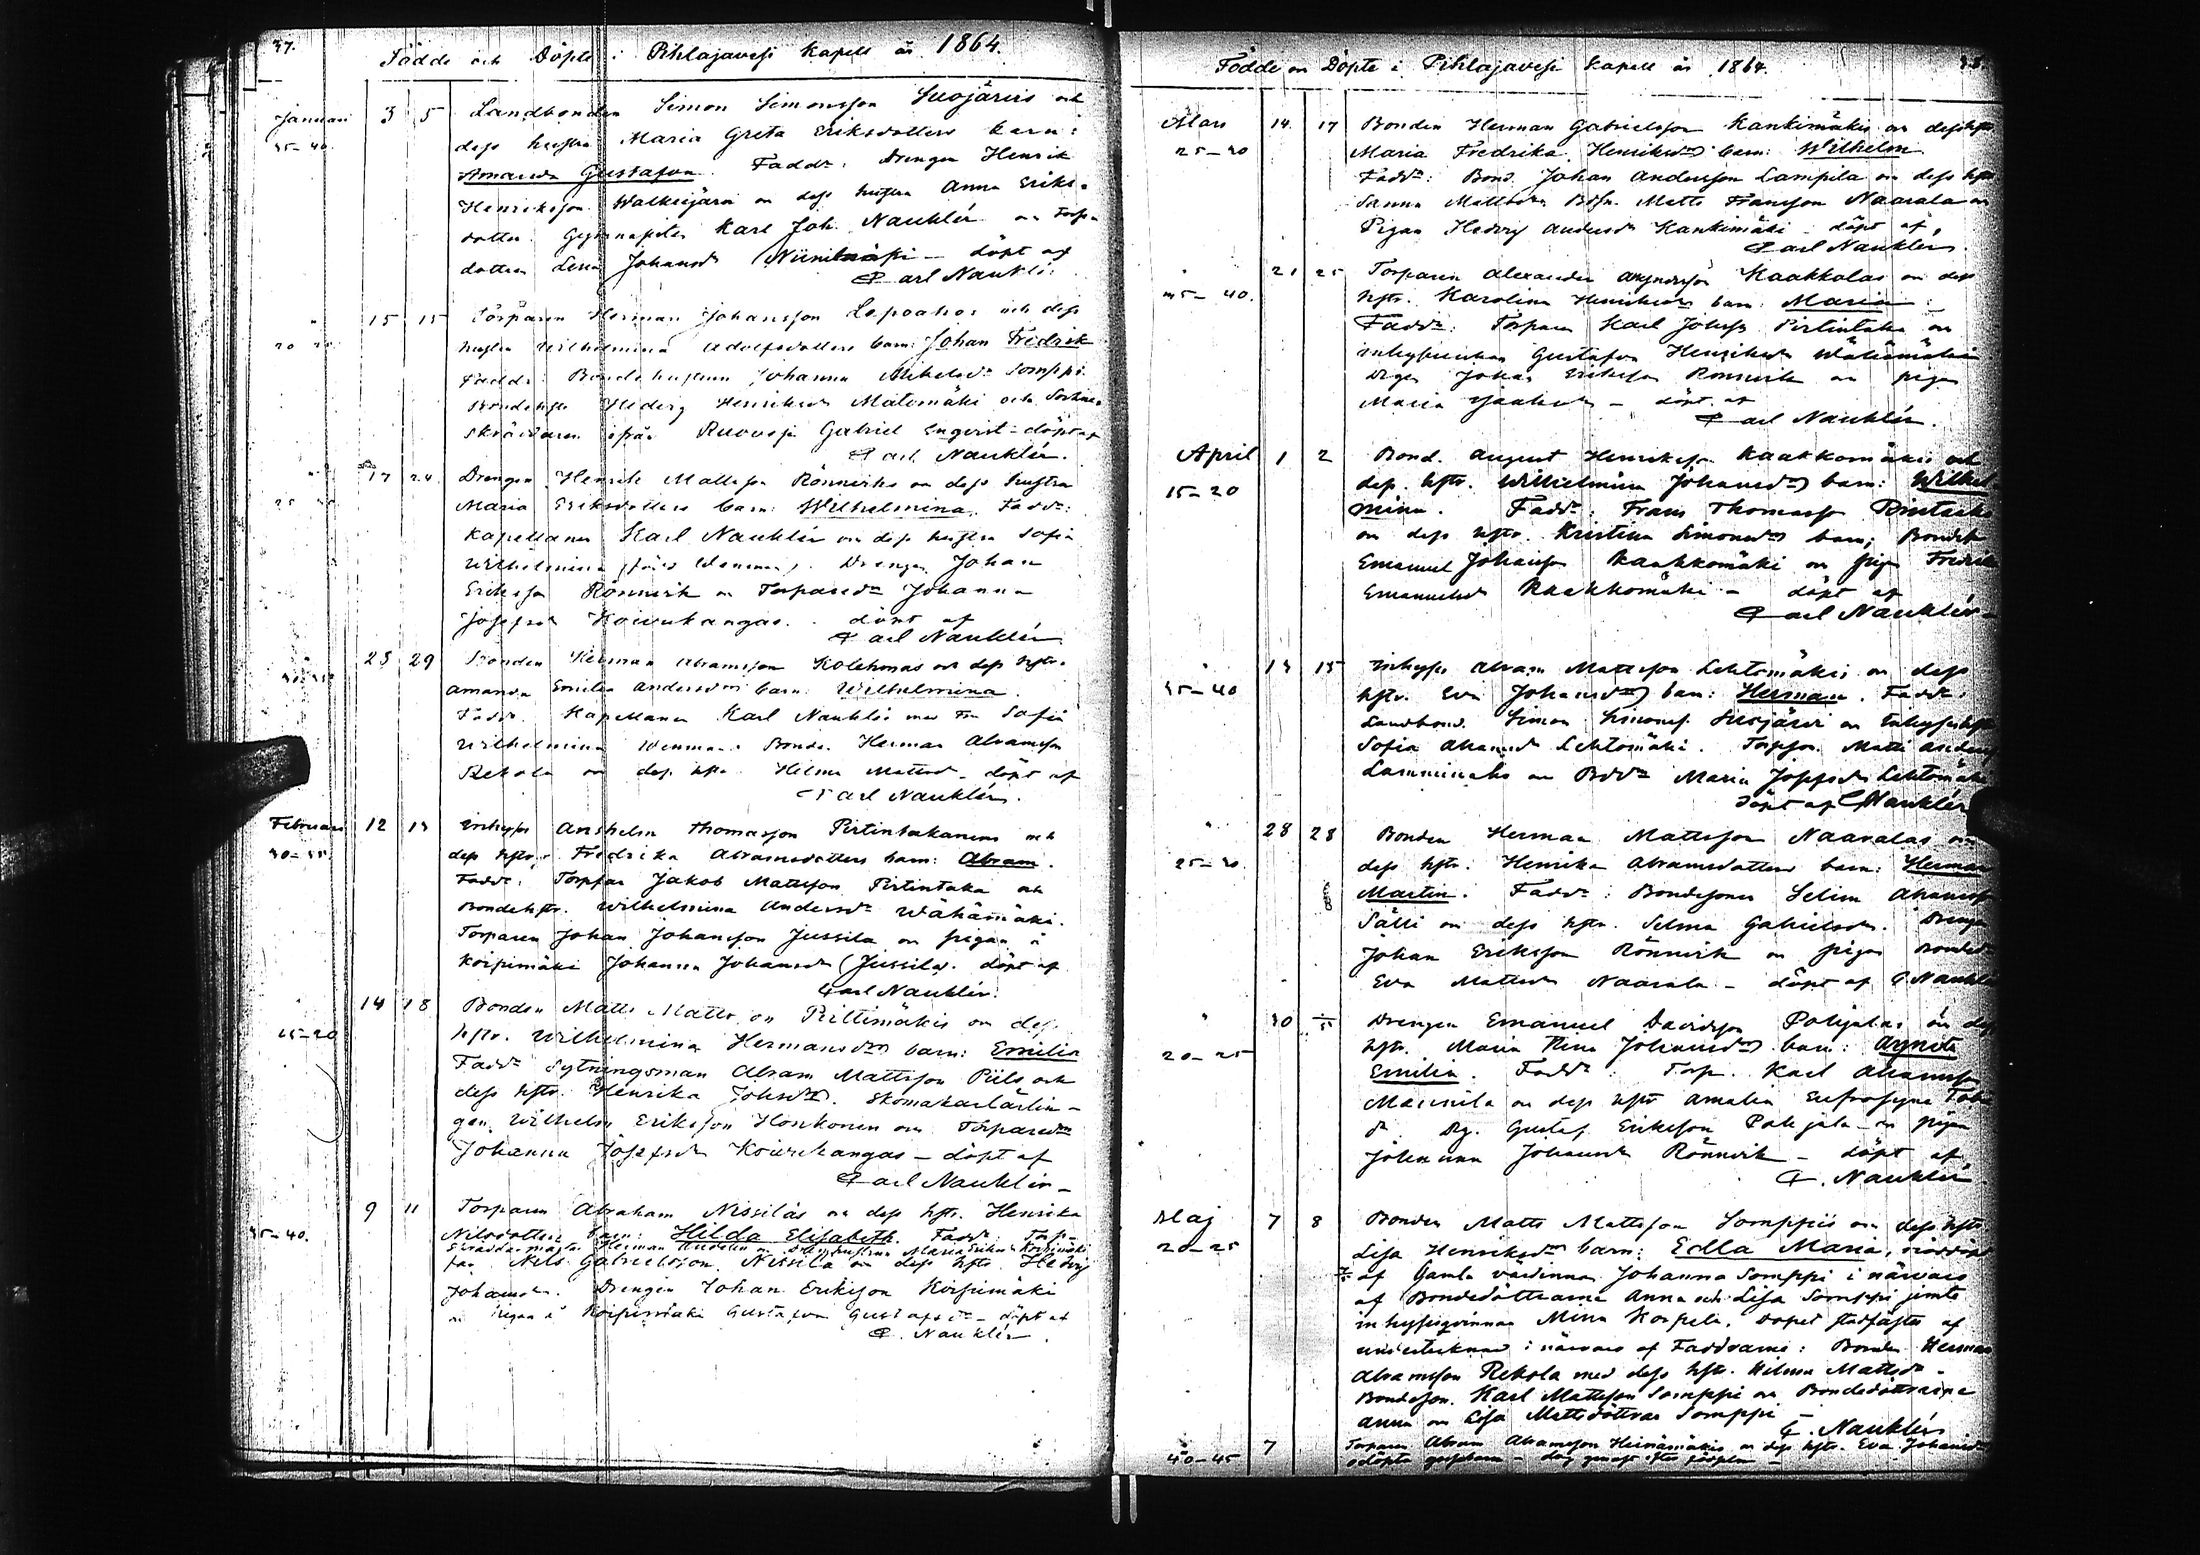 37.
Födde och Döpte i Pihlajavesi Kapell år 1864.
Januari 3 5 Landbonden Simon Simonsson Suojärvis och
35-40. dess hustru Maria Greta Eriksdotters barn:
Amanda Gustafva. Faddr: Drengen Henrik
Henriksson Walkeijärvi och dess hustru Anna Eriks-
dotter. Gymnasisten Karl Joh. Nauklér och Torp-
dottren Lena Johansdr Niinimäki - döpt af
Carl Nauklér
" 15 15 Torparen Herman Johansson Lepoahos och dess
hustru Wilhelmina Adolfsdotters barn: Johan Fredrik
Faddr: Bondehustrun Johanna Mikelsdr Somppi
Bondehstr Hedvig Henriksdr Matomäki och Sockne-
skräddaren ifrån Ruovesi Gabriel Enqvist - döpt af
Carl Nauklér.
" 17 24 Drengen Henrik Mattsson Rönnviks och dess hustru
Maria Eriksdotters barn: Wilhelmina. Faddr:
Kapellanen Karl Nauklér och dess hustru Sofia
Wilhelmina född Wenman. Drengen Johan
Eriksson Rönnvik och Torparedr Johanna
Josefsdr Koivukangas. döpt af
Carl Nauklér
28 29 Bonden Herman Abramsson Kolehmas och dess hstr.
Amanda Emilia Andersdrs barn: Wilhelmina.
Faddr. Kapellanen Karl Nauklér med Fru Sofia
Wilhelmina Wenman. Bonden Herman Abramsson
Rekola och dess hstr. Hilma Mattsdr - döpt af
Carl Nauklér.
Februari 12 13 Inhyses Anshelm Thomasson Pirtintakanens och
30-35. dess hstr. Fredrika Abramsdotters barn: Abram.
Faddr: Torpfar Jakob Mattsson Pirtintaka och
Bondehstr. Wilhelmina Andersdr Wähämäki.
Torparen Johan Johansson Jussila och pigan å
Koipimäki Johanna Johansdr (Jussila). döpt af
Carl Nauklér.
14 18 Bonden Matts Mattsson Pittimäkis och dess
15-20 hstr. Wilhelmina Hermansdrs barn: Emilia
Faddr Sytningsman Abram Mattsson Piils och
dess hstr. Henrika Johsdr. Skomakarlärlin-
gen Wilhelm Eriksson Honkonen och Torparedr
Johanna Josefsdr Koivukangas - döpt af
Carl Nauklér -
9 11 Torparen Abraham Nissiläs och dess hstr. Henrika
35-40. Nilsdotters barn: Hilda Elisabeth. Faddr: Torp-
far Nils Gabrielsson Nissilä och dess hstr. Hedvig
Johansdr. Drengen Johan Eriksson Koipimäki
och Pigan å Koipimäki Gustafva Gustafsdr - döpt af
C. Nauklér.
Födde och Döpte i Pihlajavesi Kapell år 1864.
Mars 14. 17 Bonden Herman Gabrielsson Kankimäkis och dess hstr
25-30 Maria Fredrika Henriksdrs barn: Wilhelm
Faddr: Bond. Johan Andersson Lampila och dess hstr
Sanna Mattsdr Bdsn. Matts Fransson Naarala och
Pigan Hedvig Andersdr Kankimäki - döpt af,
Carl Nauklér.
" 21 25 Torparen Alexander Kaakkolas och dess
35-40. hstr. Karolina Henriksdrs barn: Maria:
Faddr: Torparen Karl Johsson Pirtintaka och
inhysesenkan Gustafva Henriksdr Wähämäki
Dregen Johan Eriksson Rönnvik och pigan
Maria Jaaksdr - döpt af
Carl Nauklér.
April 1 2 Bond. August Henriksson Kaakkomäkis och
15-20 dess hstr. Wilhelmina Johansdrs barn: Wilhel-
mina. Faddr: Frans Thomasson
och dess hstr. Kristina Simonsdrs barn; Bondes.
Emanuel Johansson Kaakkomäki och pigan Fredrika
Emanuelsdr Kaakkomäki - döpt af
Carl Nauklér -
" 13 15 Inhyses Abram Mattsson Lehtomäkis och dess
35-40 hstr. Eva Johansdrs barn: Herman. Faddr:
Landbond. Simon Simonss. Suojärvi och Inhyseshstr
Sofia Abramsdr Lehtomäki. Torpson. Matti Anderss
Lamminaho och Bddr Maria Josefsdr Lehtomäki
döpt af C Nauklér
" 28 28 Bonden Herman Mattsson Naaralas och
25-30. dess hstr. Henrika Abramsdotters barn: Herman
Martin. Faddr: Bondesonen Selim Abramss
Sälli och dess hstr. Selma Gabrielsdr. Drengen
Johan Eriksson Rönnvik och pigan Bondedr
Eva Mattsdr Naarala - döpt af C. Nauklér
" 30 1/5 Drengen Emanuel Davidsson Pohjalas och dess
20-25 hstr. Maria Stina Johansdrs barn: Agneta
Emilia. Faddr: Torp. Karl Abramss
och dess hstr Amalia Eufrosyne
dr. Drg. Gustaf Eriksson Pohjala och pigan
Johanna Johansdr Rönnvik - döpt af
C. Nauklér
Maj 7 8 Bonden Matts Mattsson Somppis och dess hstr
20-25 Lisa Henriksdrs barn: Edla Maria, nöddöpt
af Gamla värdinnan Johanna Somppi i närvaro
af Bondedöttrarna Anna och Lisa Somppi jemte
inhysesqvinnan Mina Korpela. Dopet stadfästes af
undertecknad i närvaro af Faddrarne: Bonden Herman
Abramsson Rekola med dess hstr. Hilma Mattsdr.
Bondeson. Karl Mattsson Somppi och Bondedöttrarna
Anna och Lisa Mattsdöttrar Somppi
C. Nauklér
7 Torparen Abram Abramsson Heinämäkis och dess hstr. Eva Johansdr
40-45 odöpta gossebarn - dog genast efter födseln -